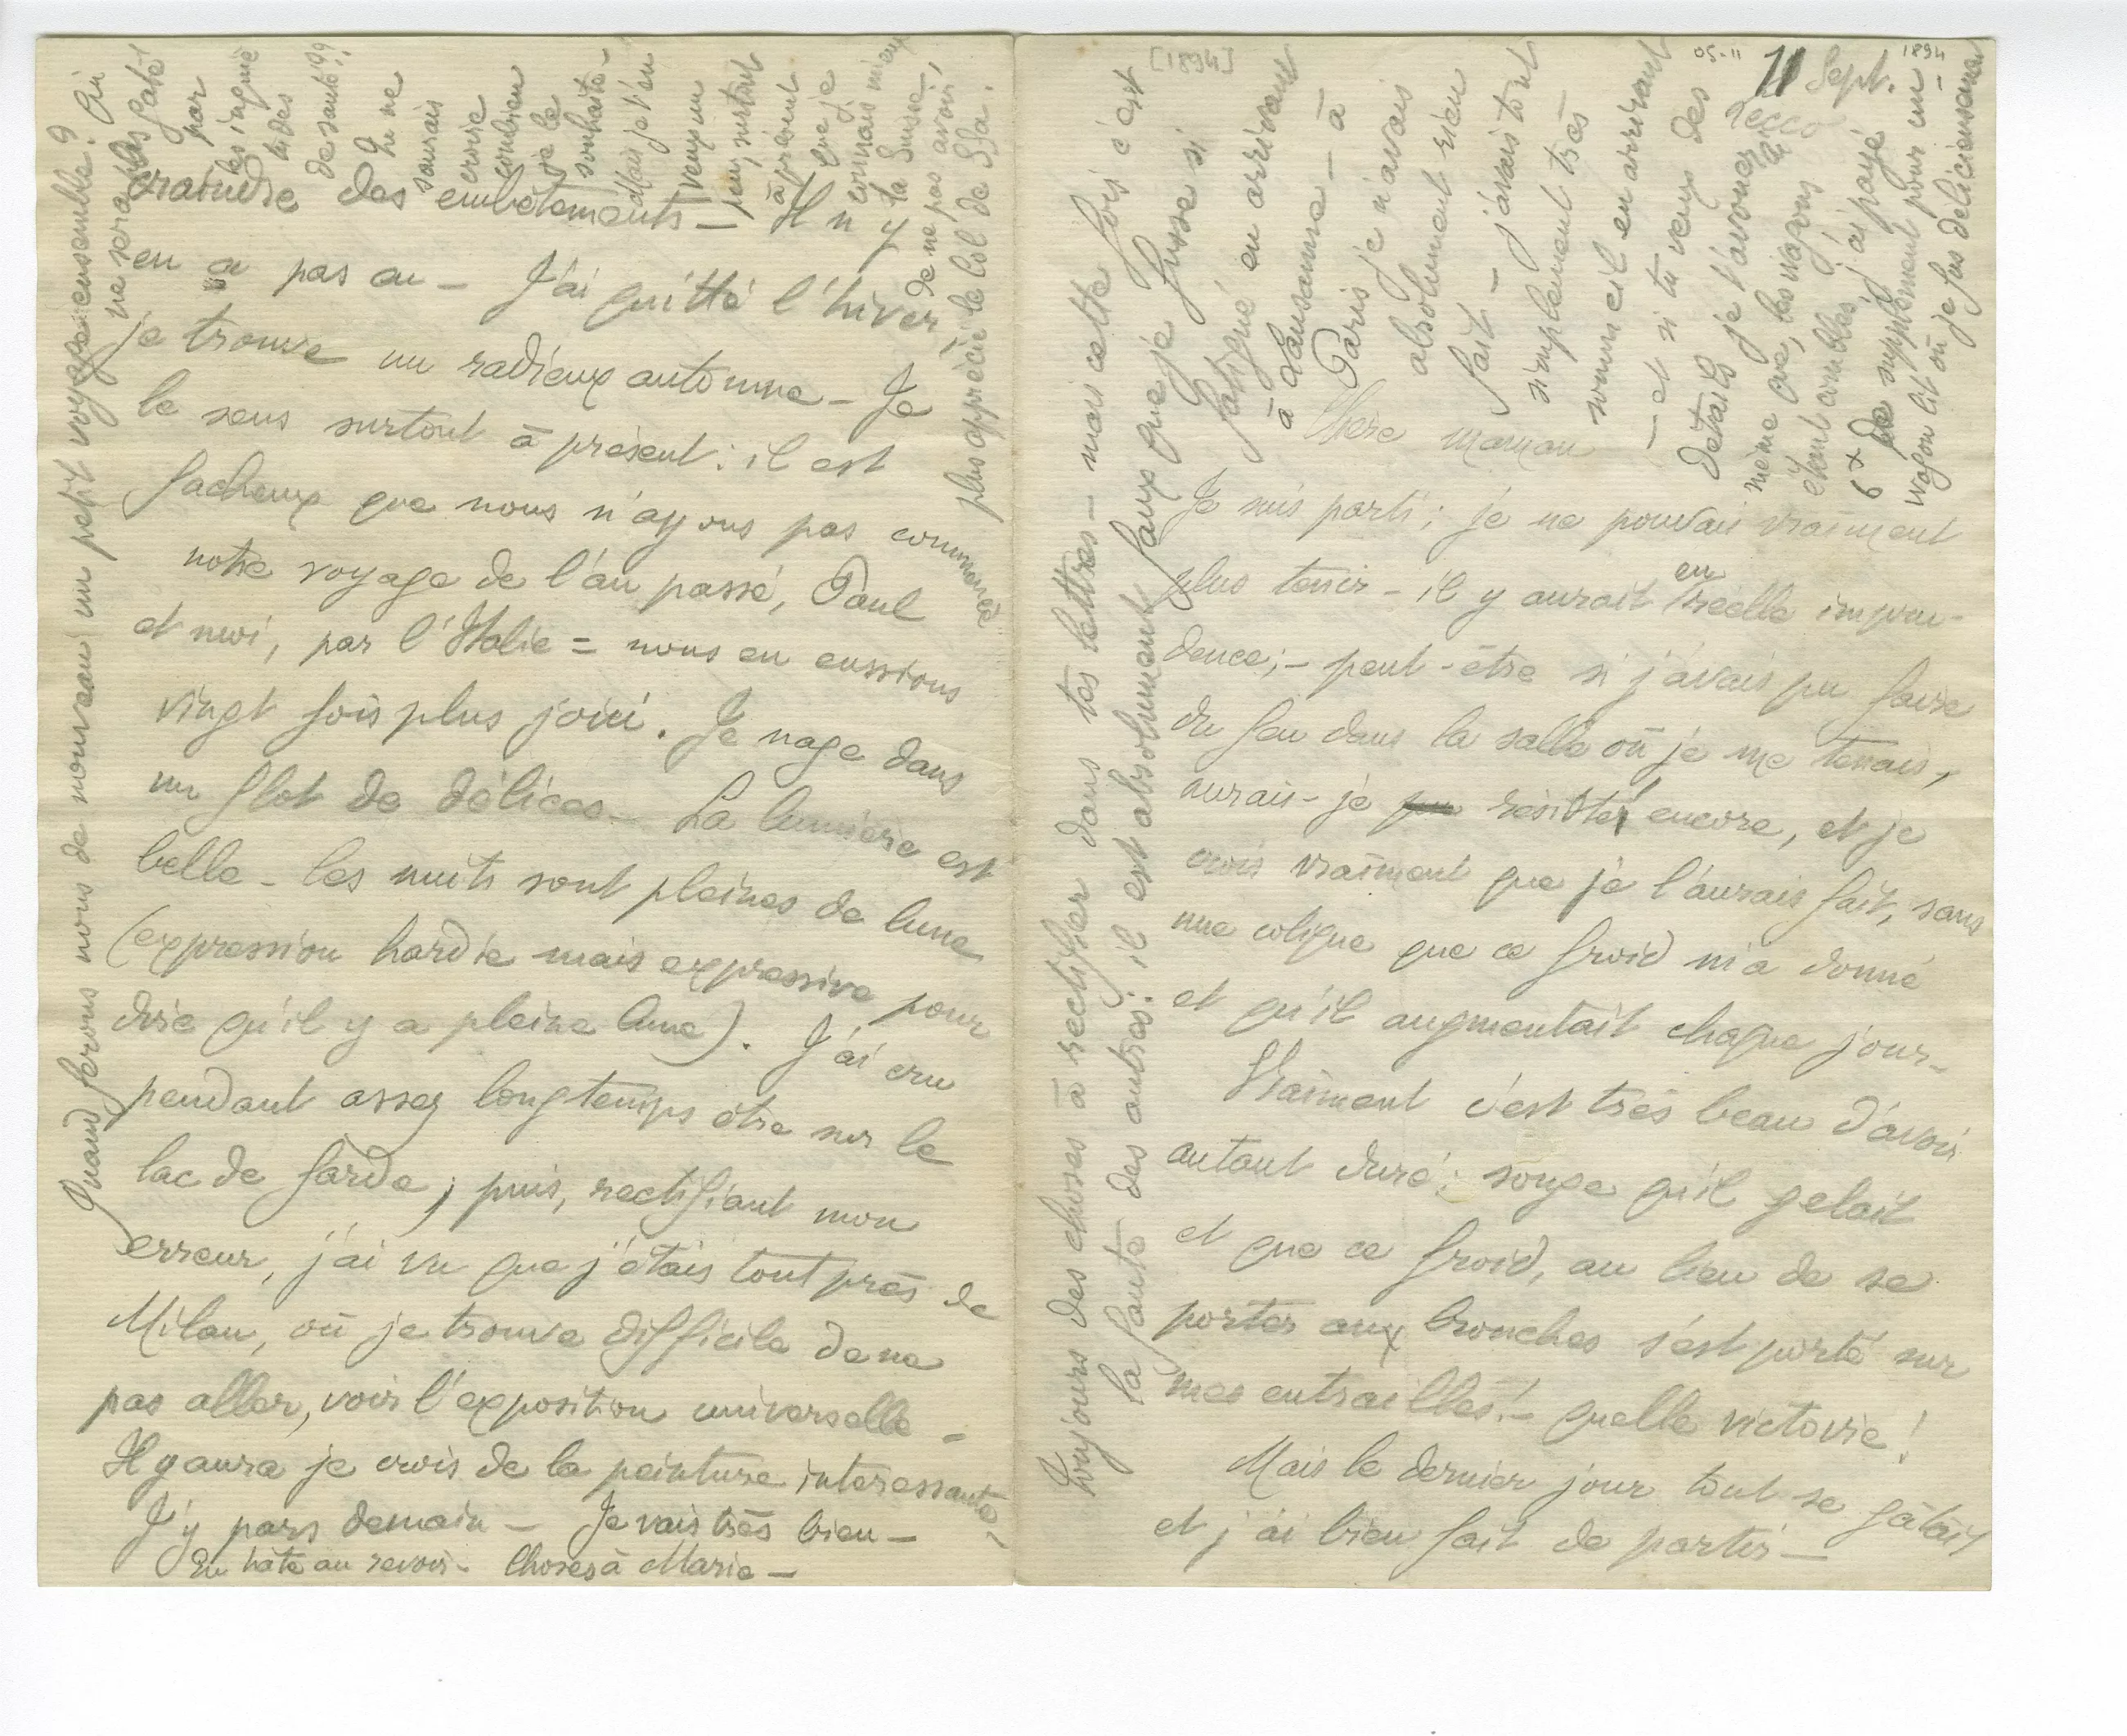 [1894]
05-11
11 Sept.
1894
Lecco
Chère maman
Je suis parti ; je ne pouvais vraiment
plus tenir - il y aurait en réelle impru-
dence ; - peut-être si j'avais pu faire
du feu dans la salle où je me tenais,
aurais-je résisté encore, et je
crois vraiment que je l'aurais fait, sans
une colique que ce froid m'a donné
et qu'il augmentait chaque jour -
Vraiment c'est très beau d'avoir
autant duré : songe qu'il gelait
et que ce froid, au lieu de se
porter aux bronches s'est porté sur
mes entrailles ! - quelle victoire !
Mais le dernier jour tout se gâtait
et j'ai bien fait de partir -
Toujours des choses à rectifier dans tes lettres - mais cette fois c'est
la faute des autres : il est absolument faux que je fusse si
fatigué en arrivant
à Lausanne - à
Paris je n'avais
absolument rien
fait - j'avais tout
simplement très
sommeil en arrivant
- et si tu veux des
détails je t'avouerai
même que, les wagons
étant combles, j'ai payé
6 x de supplément pour un
wagon lit où je fus délicieusement
craindre des embêtements - Il n'y
en a pas eu - J'ai quitté l'hiver,
je trouve un radieux automne - Je
le sens surtout à présent : il est
facheux que nous n'ayons pas commencé
notre voyage de l'an passé, Paul
et moi, par l'Italie = nous en eussions
vingt fois plus joui. Je nage dans
un flot de délices - La lumière est
belle - les nuits sont pleines de lune
(expression hardie mais expressive pour
dire qu'il y a pleine lune). J'ai cru
pendant assez longtemps être sur le
lac de Garde ; puis, rectifiant mon
erreur, j'ai vu que j'étais tout près de
Milan, où je trouve difficile de ne
pas aller, voir l'exposition universelle -
Il y aura je crois de la peinture intéressante,
J'y pars demain - Je vais très bien -
En hâte au revoir - Choses à Marie -
Quand ferons nous de nouveau un petit voyage ensemble ? Qui
ne sera pas gâté
par
les inquié
tudes
de santé ??
Tu ne
saurais
croire
combien
je le
souhaite -
Mais je t'en
veux un
peu, surtout
à présent
que je
connais mieux
la Suisse,
de ne pas avoir,
plus apprécié le col de